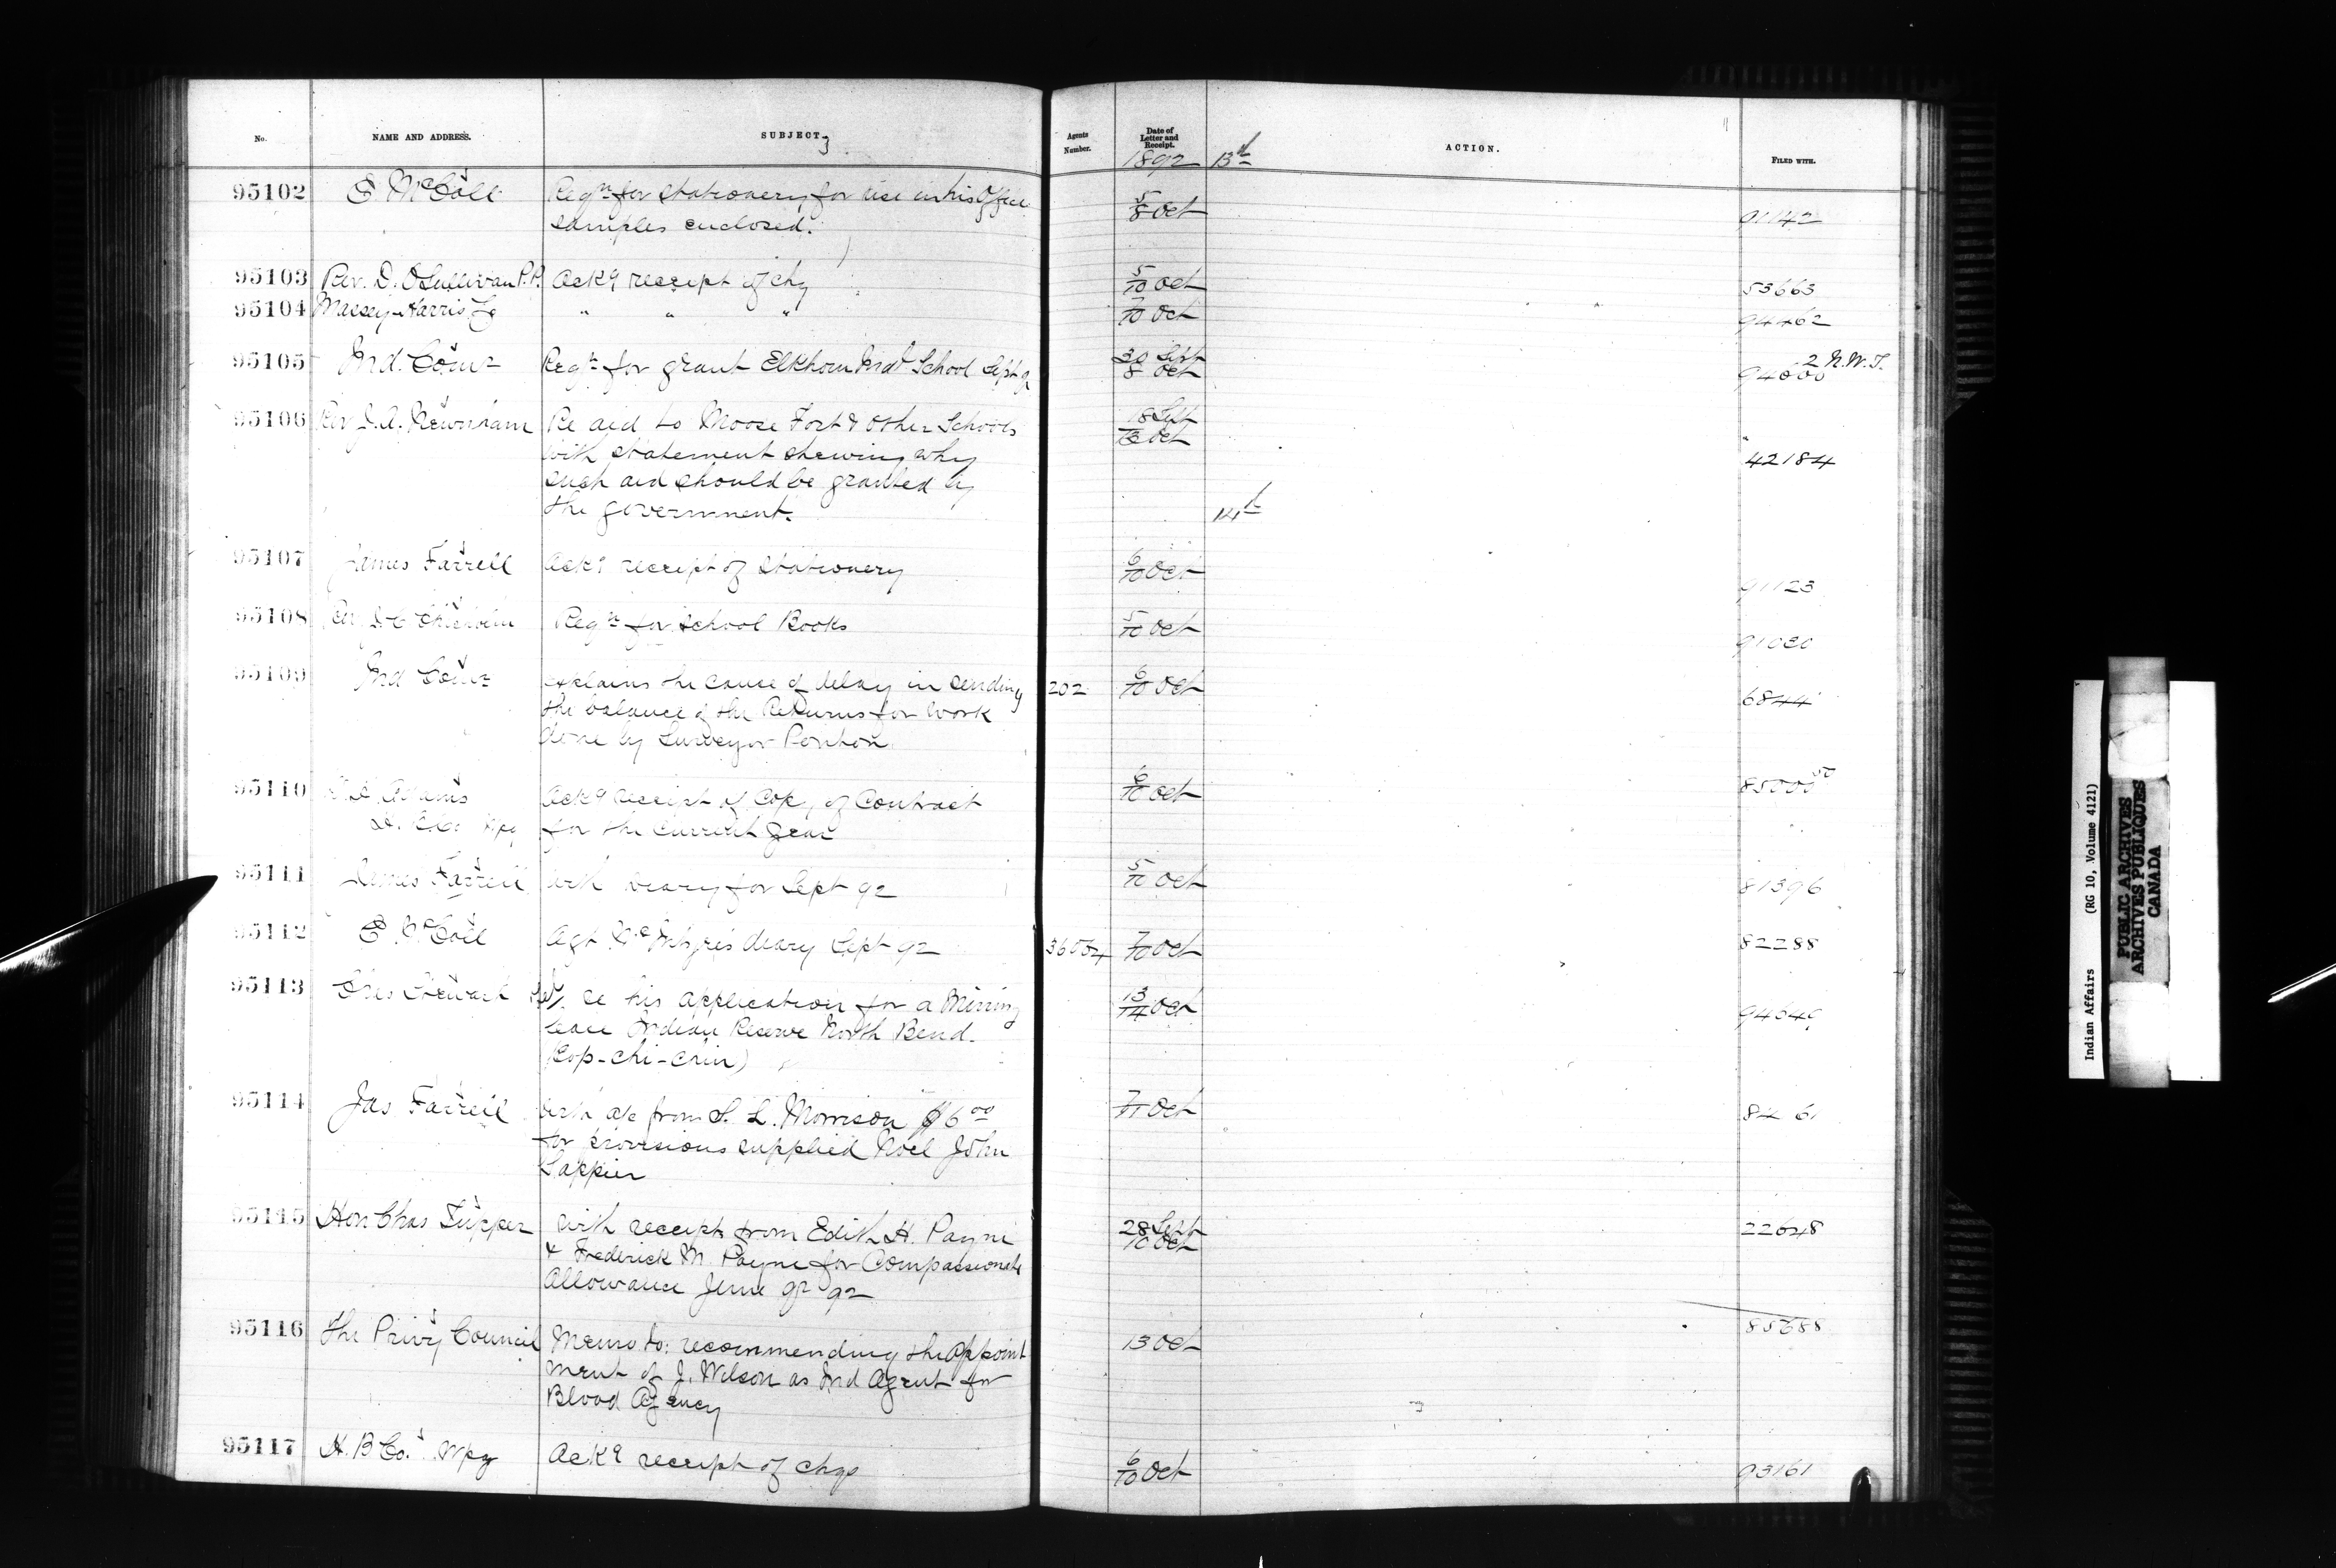 No. NAME AND ADDRESS. SUBJECT. Agents Number. Date of Letter and Receipt. ACTION. FILED WITH.
3
1892 13th
95102 E. McColl Reqn for stationery for use in his Office 5/8 Oct 91142
samples enclosed.
95103 Rev. D. O'Sullivan P.P. Ackg receipt of chq 5/10 Oct 53663
95104 Massey-Harris Co " " " 7/10 Oct 94462
95105 Ind. Comr Reqn for grant Elkhorn Indl School Sept 92 30 Sept / 8 Oct 94000 2 N.W.T.
95106 Rev J. A. Newnham Re aid to Moose Fort & other Schools 18 Sept / 13 Oct 42184
with statement shewing why
such aid should be granted by
the government.
14th
95107 James Farrell Ackg receipt of stationery 6/10 Oct 91123
95108 Rev Reqn for School Books 5/10 Oct 91030
95109 Ind Comr explains the cause of delay in sending 202 6/10 Oct 6844
the balance of the Returns for work
done by Surveyor Ponton.
95110 Adams Ackg receipt of Copy of Contract 6/10 Oct 85000
Wpg for the current year
95111 James Farrell With diary for Sept 92 5/10 Oct 81396
95112 E. McColl Agt McIntyre's diary Sept 92 7/10 Oct 82288
95113 Stewart re his application for a Mining 13/14 Oct
lease Indian Reserve North Bend.
(Cop-chi-chin)
95114 Jas Farrell with a/c from S. L. Morrison $6 00 7/11 Oct 84 61
for provisions supplied Noel John
Lappier
95115 Hon Chas Tupper with receipts from Edith H. Payne 28 Sept / 10 Oct 22648
& Frederick M. Payne for Compassionate
Allowance June qr 92
95116 The Privy Council Memo to: recommending the appoint 13 Oct 85688
ment of J. Wilson as Ind Agent for
Blood Agency
95117 H. B Co. Wpg Ackg receipt of chqs 6/10 Oct 93161
Indian Affairs (RG 10, Volume 4121)
PUBLIC ARCHIVES
ARCHIVES PUBLIQUES
CANADA